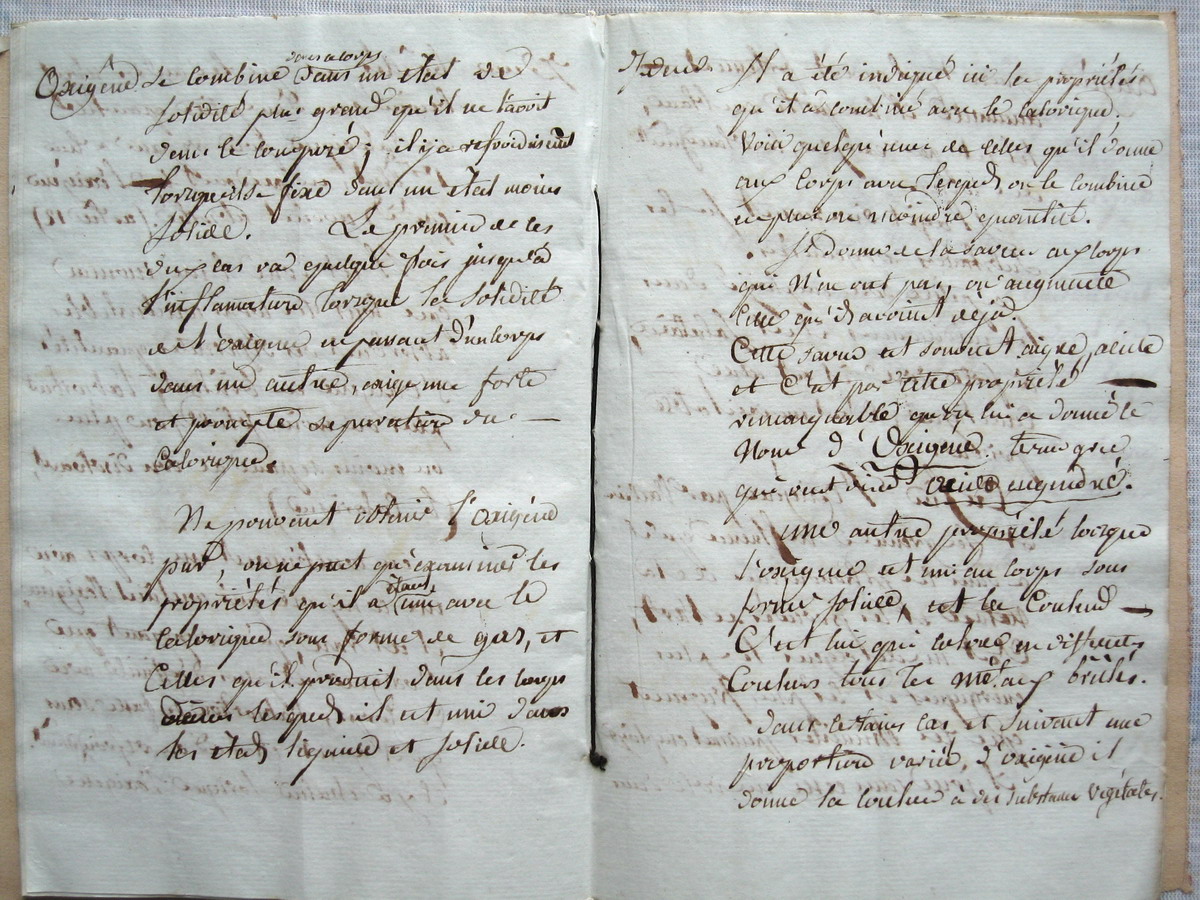 Oxigène se combine dans un état de
dans un corps
solidité plus grand qu'il ne l'avoit
dans le comparé; il y a refroidissemt
lorsqu'il se fixe dans un état moins
solide. Le premier de ces
deux cas va quelque fois jusqu'à
l'inflamation lorsque la solidité
de l'oxigène en passant d'un corps
dans un autre, exige une forte
et prompte séparation du
Calorique.
Ne pouvant obtenir l'oxigène
pur on ne peut qu'examiner les
propriétés qu'il a étant uni avec le
Calorique sous forme de gas, et
Celles qu'il produit dans les corps
lesquels il est uni dans
les états liquide et solide.
Idem. Il a été indiqué ici les propriétés
qu'il a combiné avec le Calorique.
Voici quelqu'unes de celles qu'il donne
aux Corps avec lesquels on le combine
en plus ou moindre quantité.
Il donne de la saveur aux corps
qui N'en ont pas, ou augmente
Celle qu'ils avoient déjà.
Cette saveur est souvent aigre, acide
et C'est par cette propriété
remarquable qu'on lui a donné le
Nom d'Oxigène: terme grec
qui veut dire acide engendré.
Une autre propriété lorsque
l'oxigène est uni au corps sous
forme solide, est la Couleur
C'est lui qui colore en différentes
Couleurs tous les métaux brûlés.
dans certains cas et suivant une
proportion variée, d'oxigène il
donne la couleur à des substances végétales.